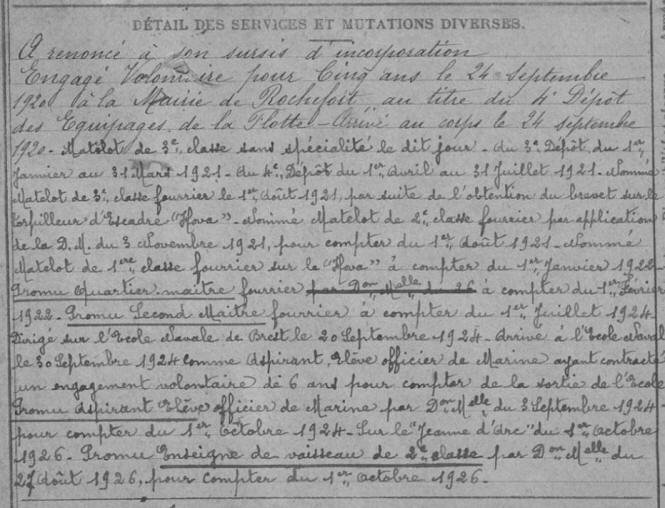 DÉTAIL DES SERVICES ET MUTATIONS DIVERSES.
A renoncé à son sursis d'incorporation
Engagé Volontaire pour Cinq ans le 24 Septembre
1920 à la Mairie de Rochefort, au titre du 4e Dépôt
des Equipages de la Flotte - Arrivé au corps le 24 septembre
1920 - Matelot de 3e classe sans spécialité le dit jour - du 3e Dépôt du 1er
Janvier au 31 Mars 1921 - du 4e Dépôt du 1er avril au 31 Juillet 1921 - Nommé
Matelot de 3e classe fourrier le 1er Août 1921, par suite de l'obtention du brevet sur le
torpilleur d'Escadre "Hova" - Nommé Matelot de 2e classe fourrier par application
de la D.M. du 3 Novembre 1921, pour compter du 1er Août 1921 - Nommé
Matelot de 1ère classe fourrier sur le "Hova" à compter du 1er Janvier 1922
Promu Quartier-maitre fourrier par Don Melle du 26 à compter du 1er Février
1922 - Promu Second Maitre fourrier à compter du 1er Juillet 1924 -
Dirigé sur l'Ecole Navale de Brest le 20 Septembre 1924 - Arrivé à l'Ecole Naval
le 30 Septembre 1924 comme Aspirant, Elève officier de Marine ayant contracté
un engagement volontaire de 6 ans pour compter de la sortie de l'Ecole
Promu Aspirant Elève officier de Marine par Don Melle du 3 Septembre 1924 -
pour compter du 1er Octobre 1924 - Sur le "Jeanne d'Arc" du 1er Octobre
1926 - Promu Enseigne de vaisseau de 2e classe par Don Melle du
27 Août 1926, pour compter du 1er Octobre 1926 -